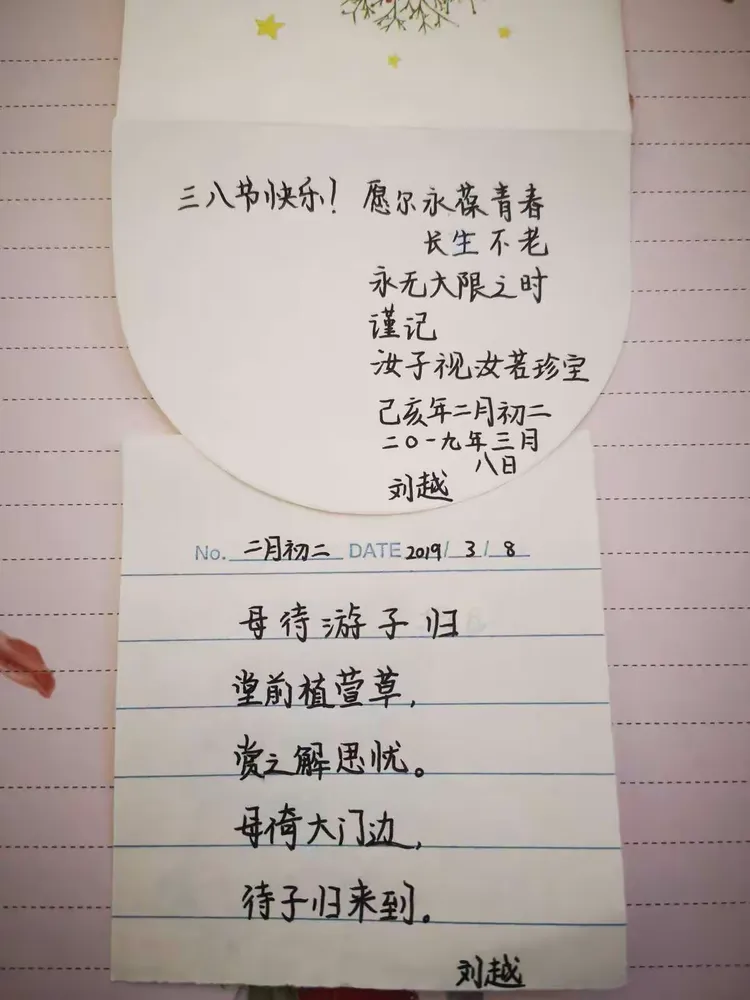 三八节快乐！愿尔永葆青春
长生不老
永无大限之时
谨记
汝子视汝若珍宝
己亥年二月初二
二〇一九年三月
八日
刘越
No. 二月初二 DATE 2019/ 3 / 8
母待游子归
堂前植萱草，
赏之解思忧。
母倚大门边，
待子归来到。
刘越